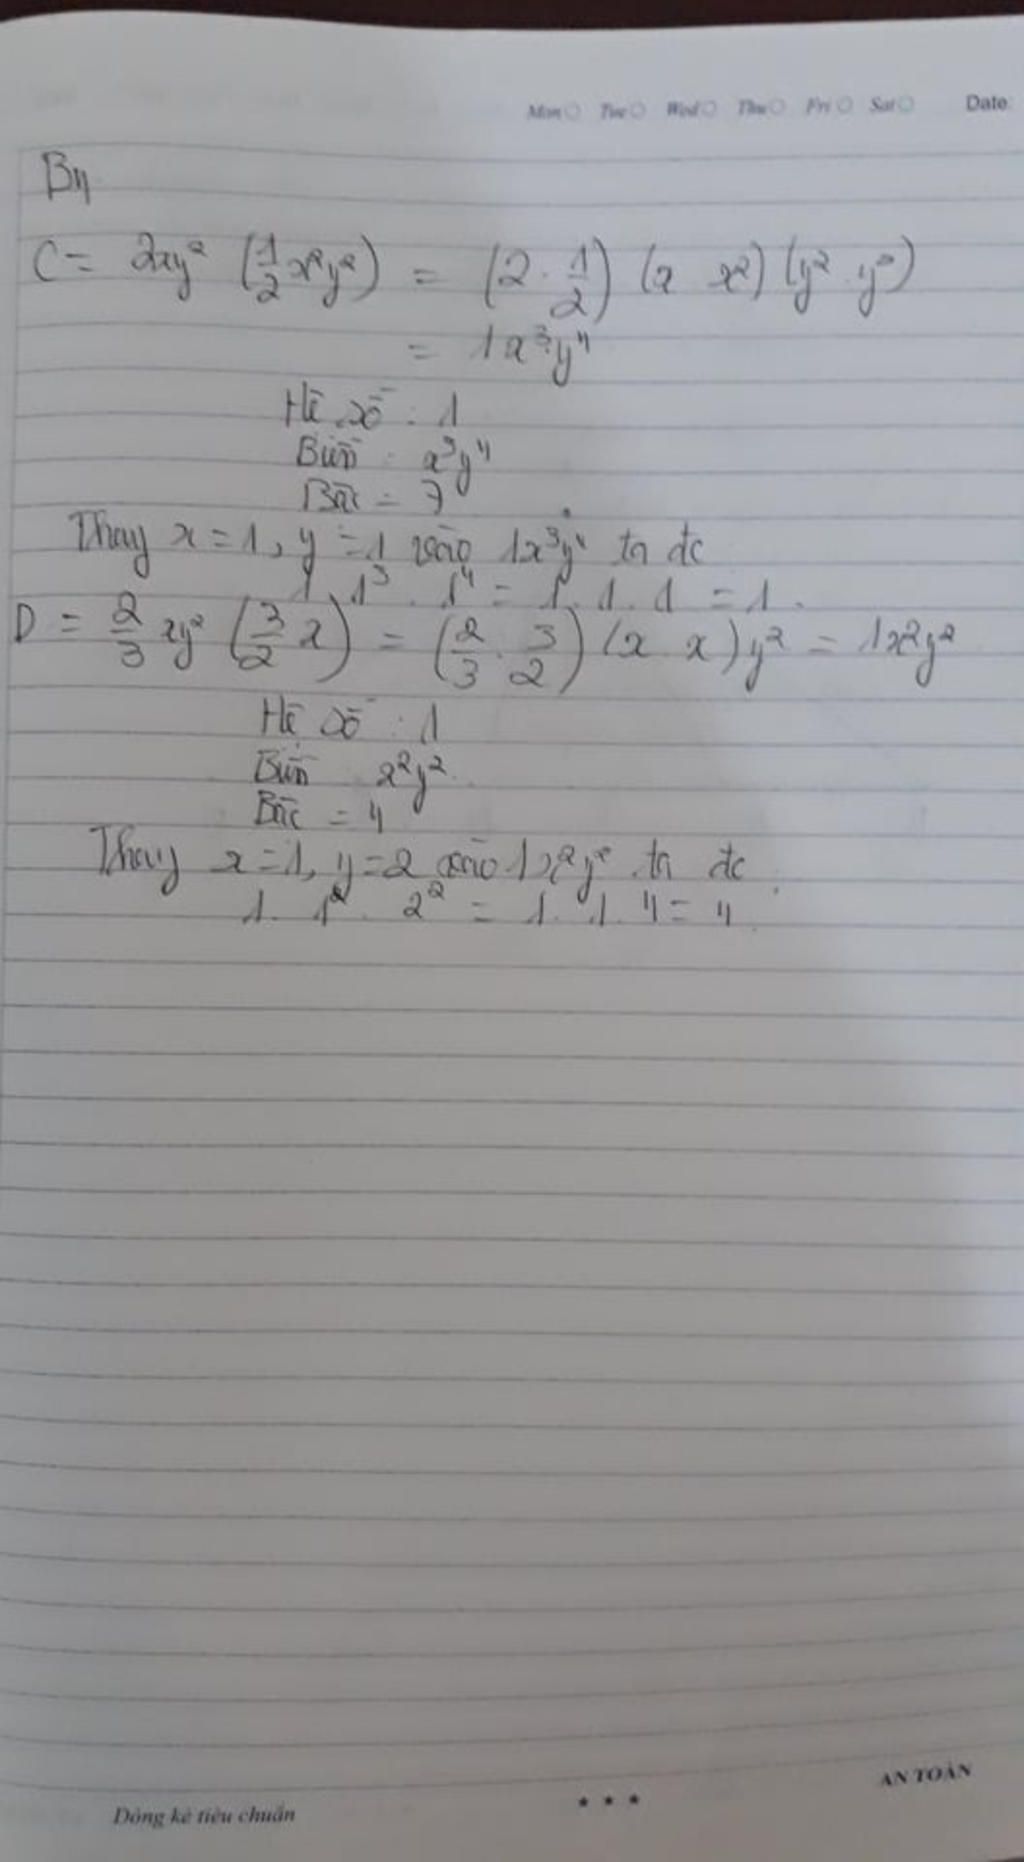 Mon Tue Wed Thu Fri Sat Date:
B4
C = 2xy² (1/2 x²y²) = (2 . 1/2) (x x²) (y² . y²)
= 1x³y⁴
Hệ số : 1
Biến : x³y⁴
Bậc = 7
Thay x = 1, y = 1 vào 1x³y⁴ ta đc
1 . 1³ . 1⁴ = 1 . 1 . 1 = 1 .
D = 2/3 xy² (3/2 x) = (2/3 . 3/2) (x x) y² = 1x²y²
Hệ số : 1
Biến x²y²
Bậc = 4
Thay x = 1, y = 2 vào 1x²y² ta đc
1 . 1² . 2² = 1 . 1 . 4 = 4
AN TOÀN
Dòng kẻ tiêu chuẩn